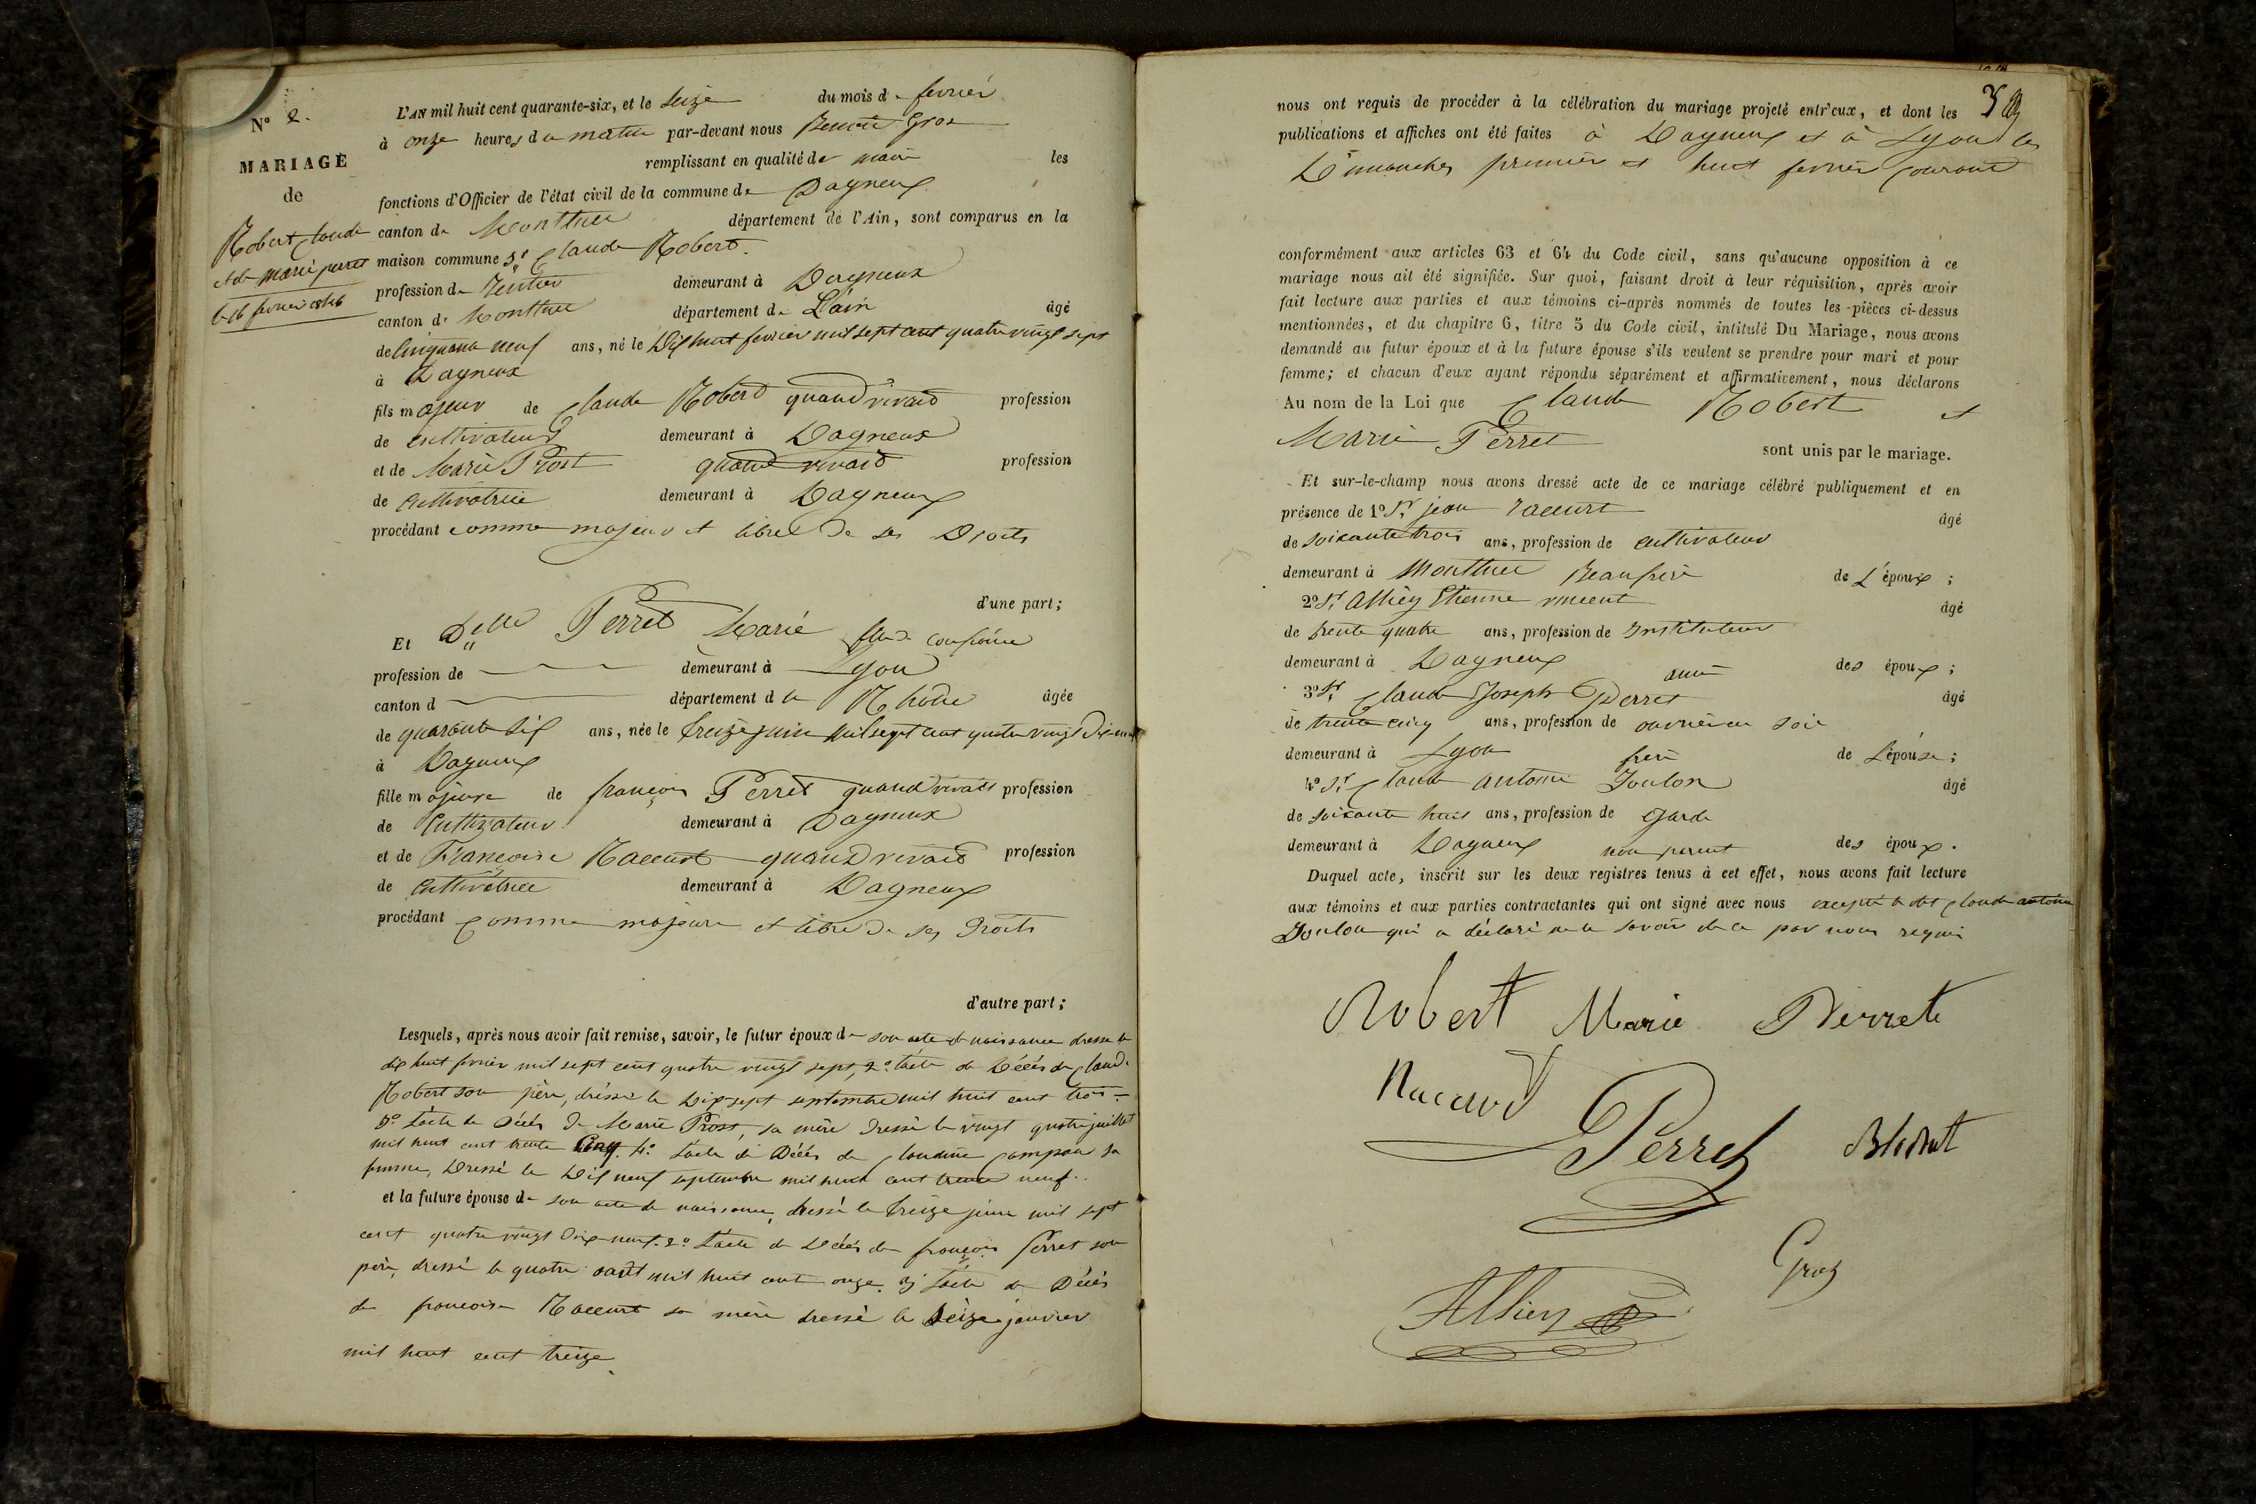 N° 2.
MARIAGE
de
Robert Claude
et de Marie perret
le 16 fevrier 1846
L'AN mil huit cent quarante-six, et le seize du mois de fevrier
à onze heures du matin par-devant nous Benoit Gros
remplissant en qualité de maire les
fonctions d'Officier de l'état civil de la commune de Dagneux
canton de Montluel département de l'Ain, sont comparus en la
maison commune Sr Claude Robert.
profession de Rentier demeurant à Dagneux
canton de Montluel département de L'ain âgé
de Cinquante neuf ans, né le Dix huit fevrier mil sept cent quatre vingt sept
à Dagneux
fils majeur de Claude Robert quand vivait profession
de cultivateur demeurant à Dagneux
et de Marie Prost quand vivait profession
de cultivatrice demeurant à Dagneux
procédant comme majeur et libre de ses Droits
d'une part;
Et Delle Perret Marie
profession de demeurant à Lyon
canton d département du Rhône âgée
de quarante six ans, née le treize juin mil sept cent quatre vingt Dix neuf
à Dagneux
fille majeure de françois Perret quand vivait profession
de Cultivateur demeurant à Dagneux
et de Françoise Raccurt quand vivait profession
de cultivatrice demeurant à Dagneux
procédant comme majeure et libre de ses Droits
d'autre part;
Lesquels, après nous avoir fait remise, savoir, le futur époux de son acte de naissance dressé le
dix huit fevrier mil sept cent quatre vingt sept, 2° l'acte de Décès de Claude
Robert son père, dressé le Dix sept septembre mil huit cent trois.
3° l'acte de Décès de Marie Prost, sa mère dressé le vingt quatre juillet
mil huit cent trente Cinq. 4° l'acte de Décès de Claudine sa
femme, Dressé le Dix neuf septembre mil huit cent trente neuf.
et la future épouse de son acte de naissance, dressé le treize juin mil sept
cent quatre vingt Dix neuf. 2° l'acte de Décès de françois Perret son
père, dressé le quatre août mil huit cent onze. 3° l'acte de Décès
de françoise Raccurt sa mère dressé le seize janvier
mil huit cent treize
nous ont requis de procéder à la célébration du mariage projeté entr'eux, et dont les
publications et affiches ont été faites à Dagneux et à Lyon les
Dimanches premier et huit fevrier Courant
conformément aux articles 63 et 64 du Code civil, sans qu'aucune opposition à ce
mariage nous ait été signifiée. Sur quoi, faisant droit à leur réquisition, après avoir
fait lecture aux parties et aux témoins ci-après nommés de toutes les pièces ci-dessus
mentionnées, et du chapitre 6, titre 5 du Code civil, intitulé Du Mariage, nous avons
demandé au futur époux et à la future épouse s'ils veulent se prendre pour mari et pour
femme; et chacun d'eux ayant répondu séparément et affirmativement, nous déclarons
Au nom de la Loi que Claude Robert et
Marie Perret sont unis par le mariage.
Et sur-le-champ nous avons dressé acte de ce mariage célébré publiquement et en
présence de 1° Sr jean raccurt âgé
de soixante trois ans, profession de cultivateur
demeurant à Montluel Beaufrère de L'époux;
2° Sr Etienne vincent âgé
de trente quatre ans, profession de Instituteur
demeurant à Dagneux ami des époux;
3° Sr Claude Joseph Perret âgé
de trente cinq ans, profession de ouvrier en soie
demeurant à Lyon frère de L'épouse;
4° Sr Claude antoine Joulon âgé
de soixante huit ans, profession de Garde
demeurant à Dagneux non parent des époux.
Duquel acte, inscrit sur les deux registres tenus à cet effet, nous avons fait lecture
aux témoins et aux parties contractantes qui ont signé avec nous excepté le dit Claude antoine
Joulon qui a déclaré ne le savoir de ce par nous requis
Robert Marie Perret
Raccurt
Perret
Gros